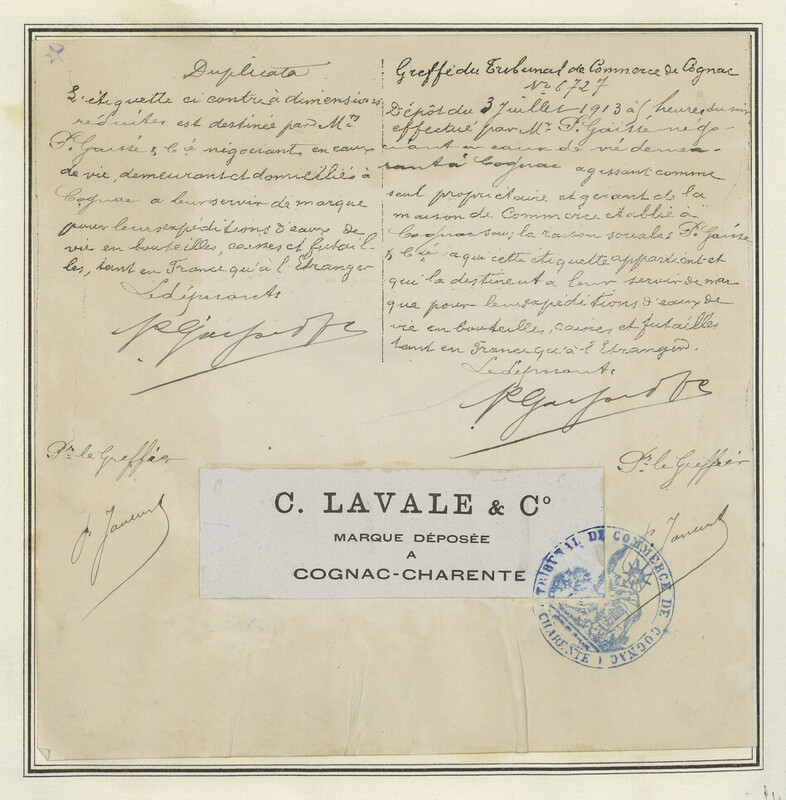 Duplicata
L'étiquette ci contre à dimensions
réduites est destinée par Mrs
P. Gaissé & Cie négociants en eaux
de vie, demeurant et domiciliés à
Cognac a leur servir de marque
pour leurs expéditions d'eaux de
vie en bouteilles, caisses et futail-
les, tant en France qu'à l'Etranger
Le déposants
Pr le Greffier
Greffe du Tribunal de Commerce de Cognac
No 6727
Dépôt du 3 Juillet 1913 à 5 heures du soir
effectué par Mr P. Gaissé négo-
ciant en eaux de vie demeu-
rant à Cognac agissant comme
seul propriétaire et gérant de la
maison de Commerce établie à
Cognac sous la raison sociales P. Gaisse
& Cie a qui cette étiquette appartient et
qui la destinent a leur servir de mar
que pour leurs expéditions d'eaux de
vie en bouteilles, caisses et futailles
tant en France qu'à l'Etranger.
Le déposants
Pr le Greffier
C. LAVALE & Co
MARQUE DÉPOSÉE
A
COGNAC-CHARENTE
TRIBUNAL DE COMMERCE DE COGNAC
CHARENTE